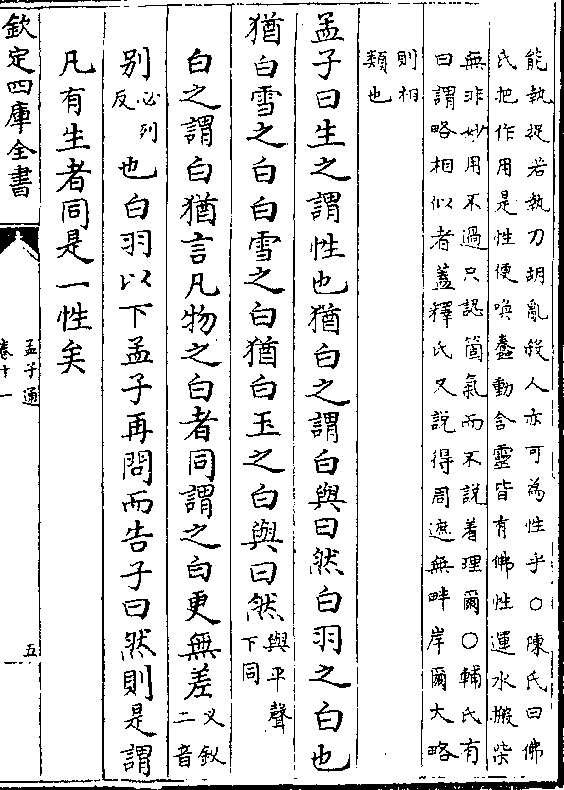 能執捉若執刀胡亂殺人亦可為性乎○陳氏曰佛
氏把作用是性便喚蠢動含靈皆有佛性運水搬柴
無非妙用不過只認箇氣而不說着理爾○輔氏有
曰謂略相似者蓋釋氏又說得周遮無畔岸爾大略
則相
類也
孟子曰生之謂性也猶白之謂白與曰然白羽之白也
猶白雪之白白雪之白猶白玉之白與曰然與平聲下同
白之謂白猶言凡物之白者同謂之白更無差义釵二音
別必列反也白羽以下孟子再問而告子曰然則是謂
凡有生者同是一性矣
欽定四庫全書
孟子通
卷十一
五